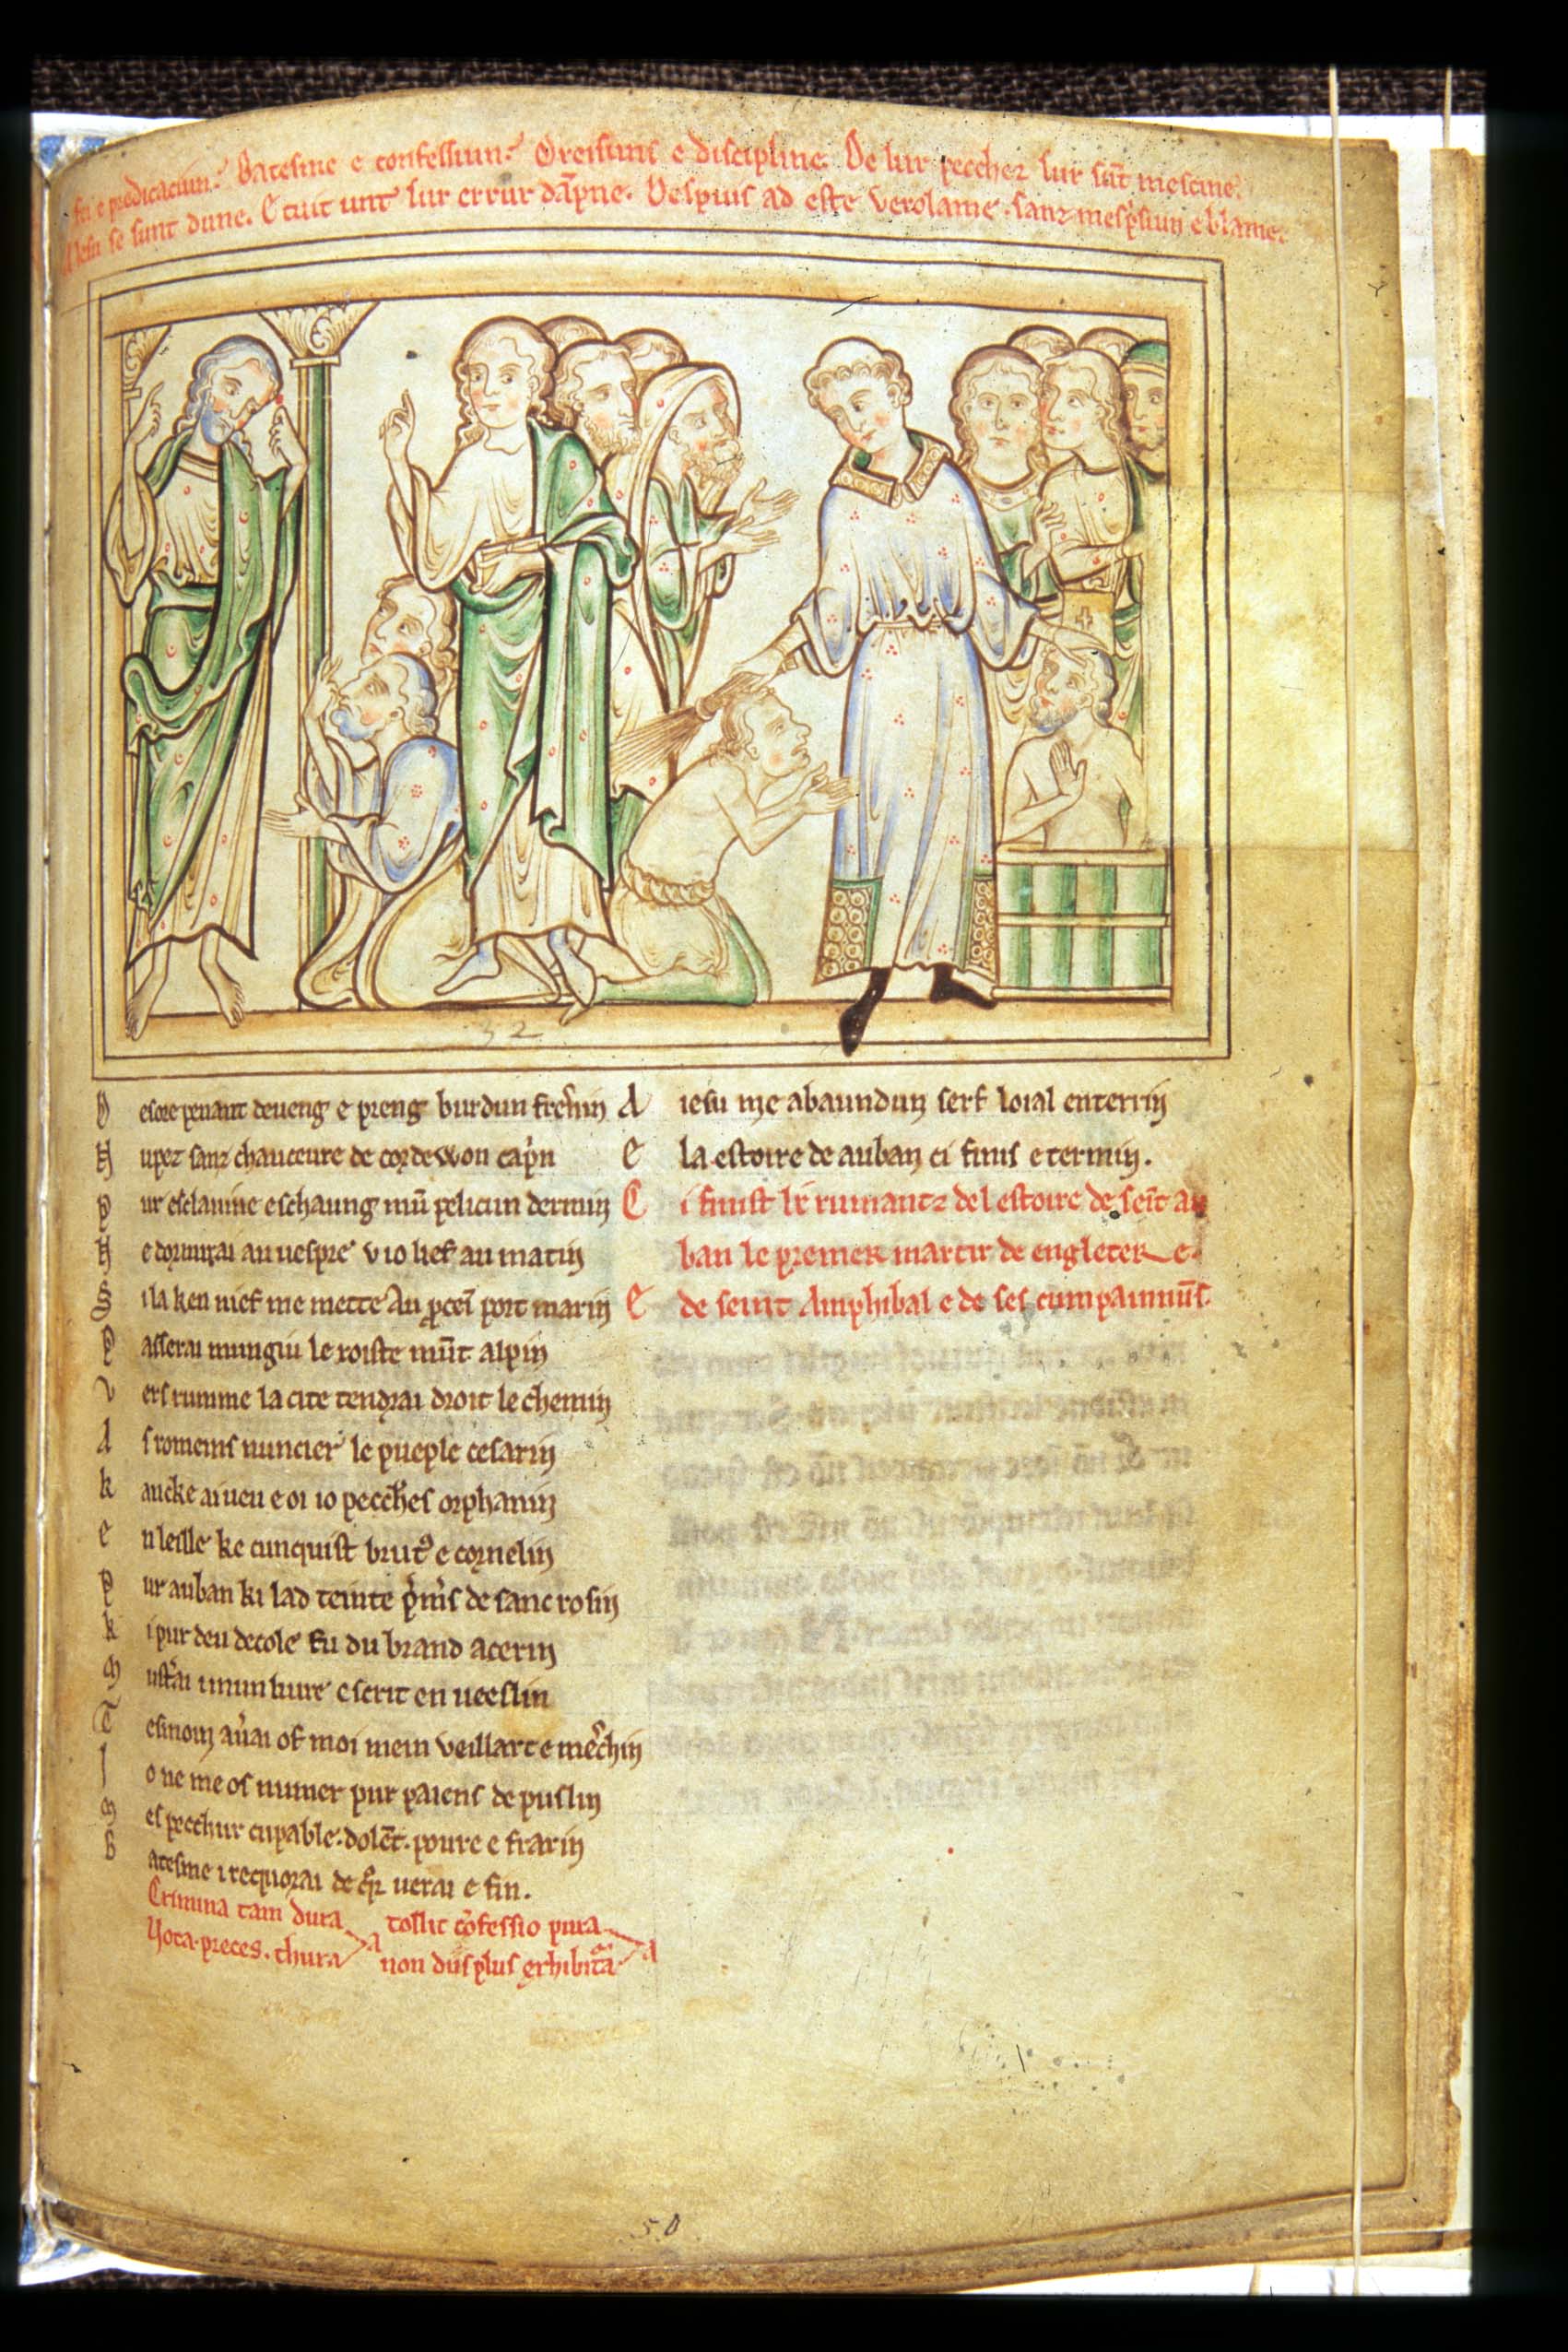 fei e predicaciun. Batesme e confessiun. Oreisuns e discipline. De lur pecchez lur sūt mescine.
A Jesu se sunt dune. E tuit unt lur errur dāpne. Despuis ad este Verolame sanz mesp̄siun e blame.
32
D esore penant deveng e preng burdun fresnin
N upez sanz chauceure de cordewon cap̍n
P ur esclavine eschaung mū pelicun dermin
H e dormirai au vespre v io lief au matin
S i la ken nief me mette au pcein port marin
P asserai mungiu le roiste mūt alpin
V ers rumme la cite tendrai droit le chemin
A s romeins nuncier le pueple cesarin
K ancke ai veu e oi io pecches orphanin
E n leisle ke cunquist brutꝰ e cornelin
P ur auban ki lad teinte p̍mis de sanc rosin
K i pur deu decole fu du brand acerin
M usterai i mun livre escrit en veeslin
T esmoin averai of moi mein veillart e meschin
I o ne me os numer pur paiens de puslin
M es pecchur cupable. dolēt. povre e frarin
B atesme i requorai de q̄r verai e fin.
Crimina tam dura tollit cōfessio pura
Vota. preces. thura non dūs plus exhibita
A iesu me abaundun serf loial enterrin
E la estoire de auban ci finis e termin.
C i finist li rumantz del estoire de seīt au
ban le premer martir de engletere.
E de seint Amphibal e de ses cumpainnūs.
50